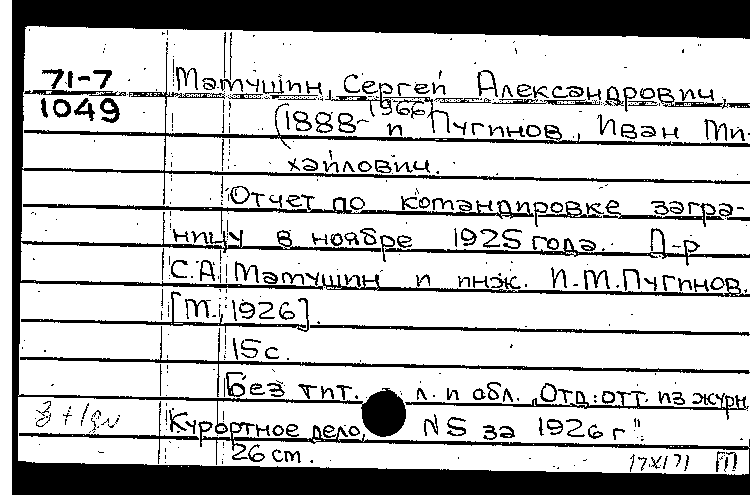 71-7 Матушин, Сергей Александрович,
1049 (1888-1966) и Пугинов, Иван Ми-
хайлович.
Отчет по командировке загра-
ницу в ноябре 1925 года. Д-р
С.А. Матушин и инж. И.М. Пугинов.
[М., 1926].
15 с.
Без тит. л. и обл. "Отд. отт. из журн.
Курортное дело, N5 за 1926 г".
26 см.
17XI71